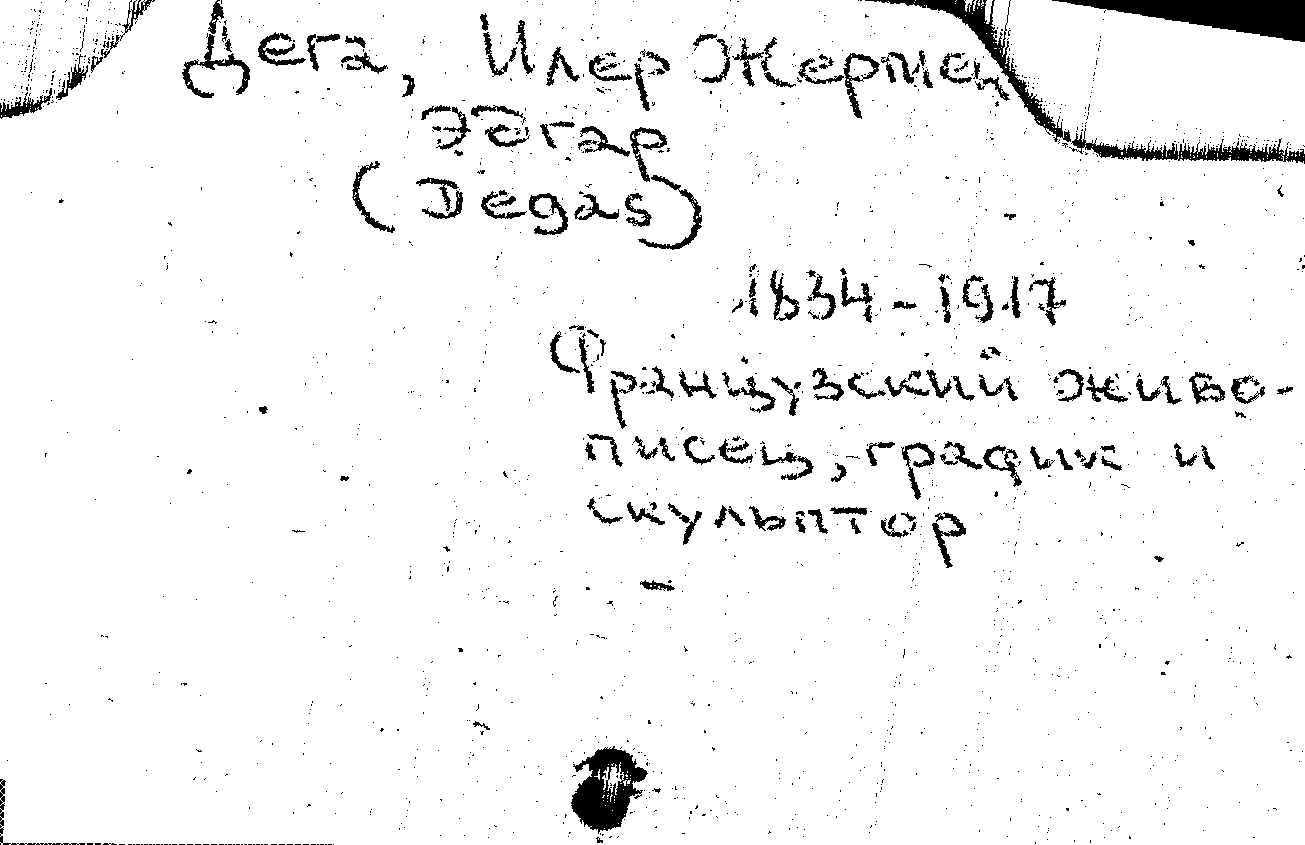 Дега, Илер Жермен
Эдгар
(Degas)
1834-1917
Французский живо-
писец, график и
скульптор